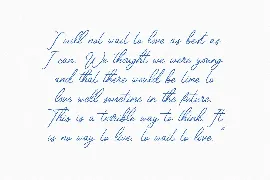 I will not wait to love as best as
I can. We thought we were young
and that there would be time to
love well sometime in the future.
This is a terrible way to think. It
is no way to live, to wait to love."